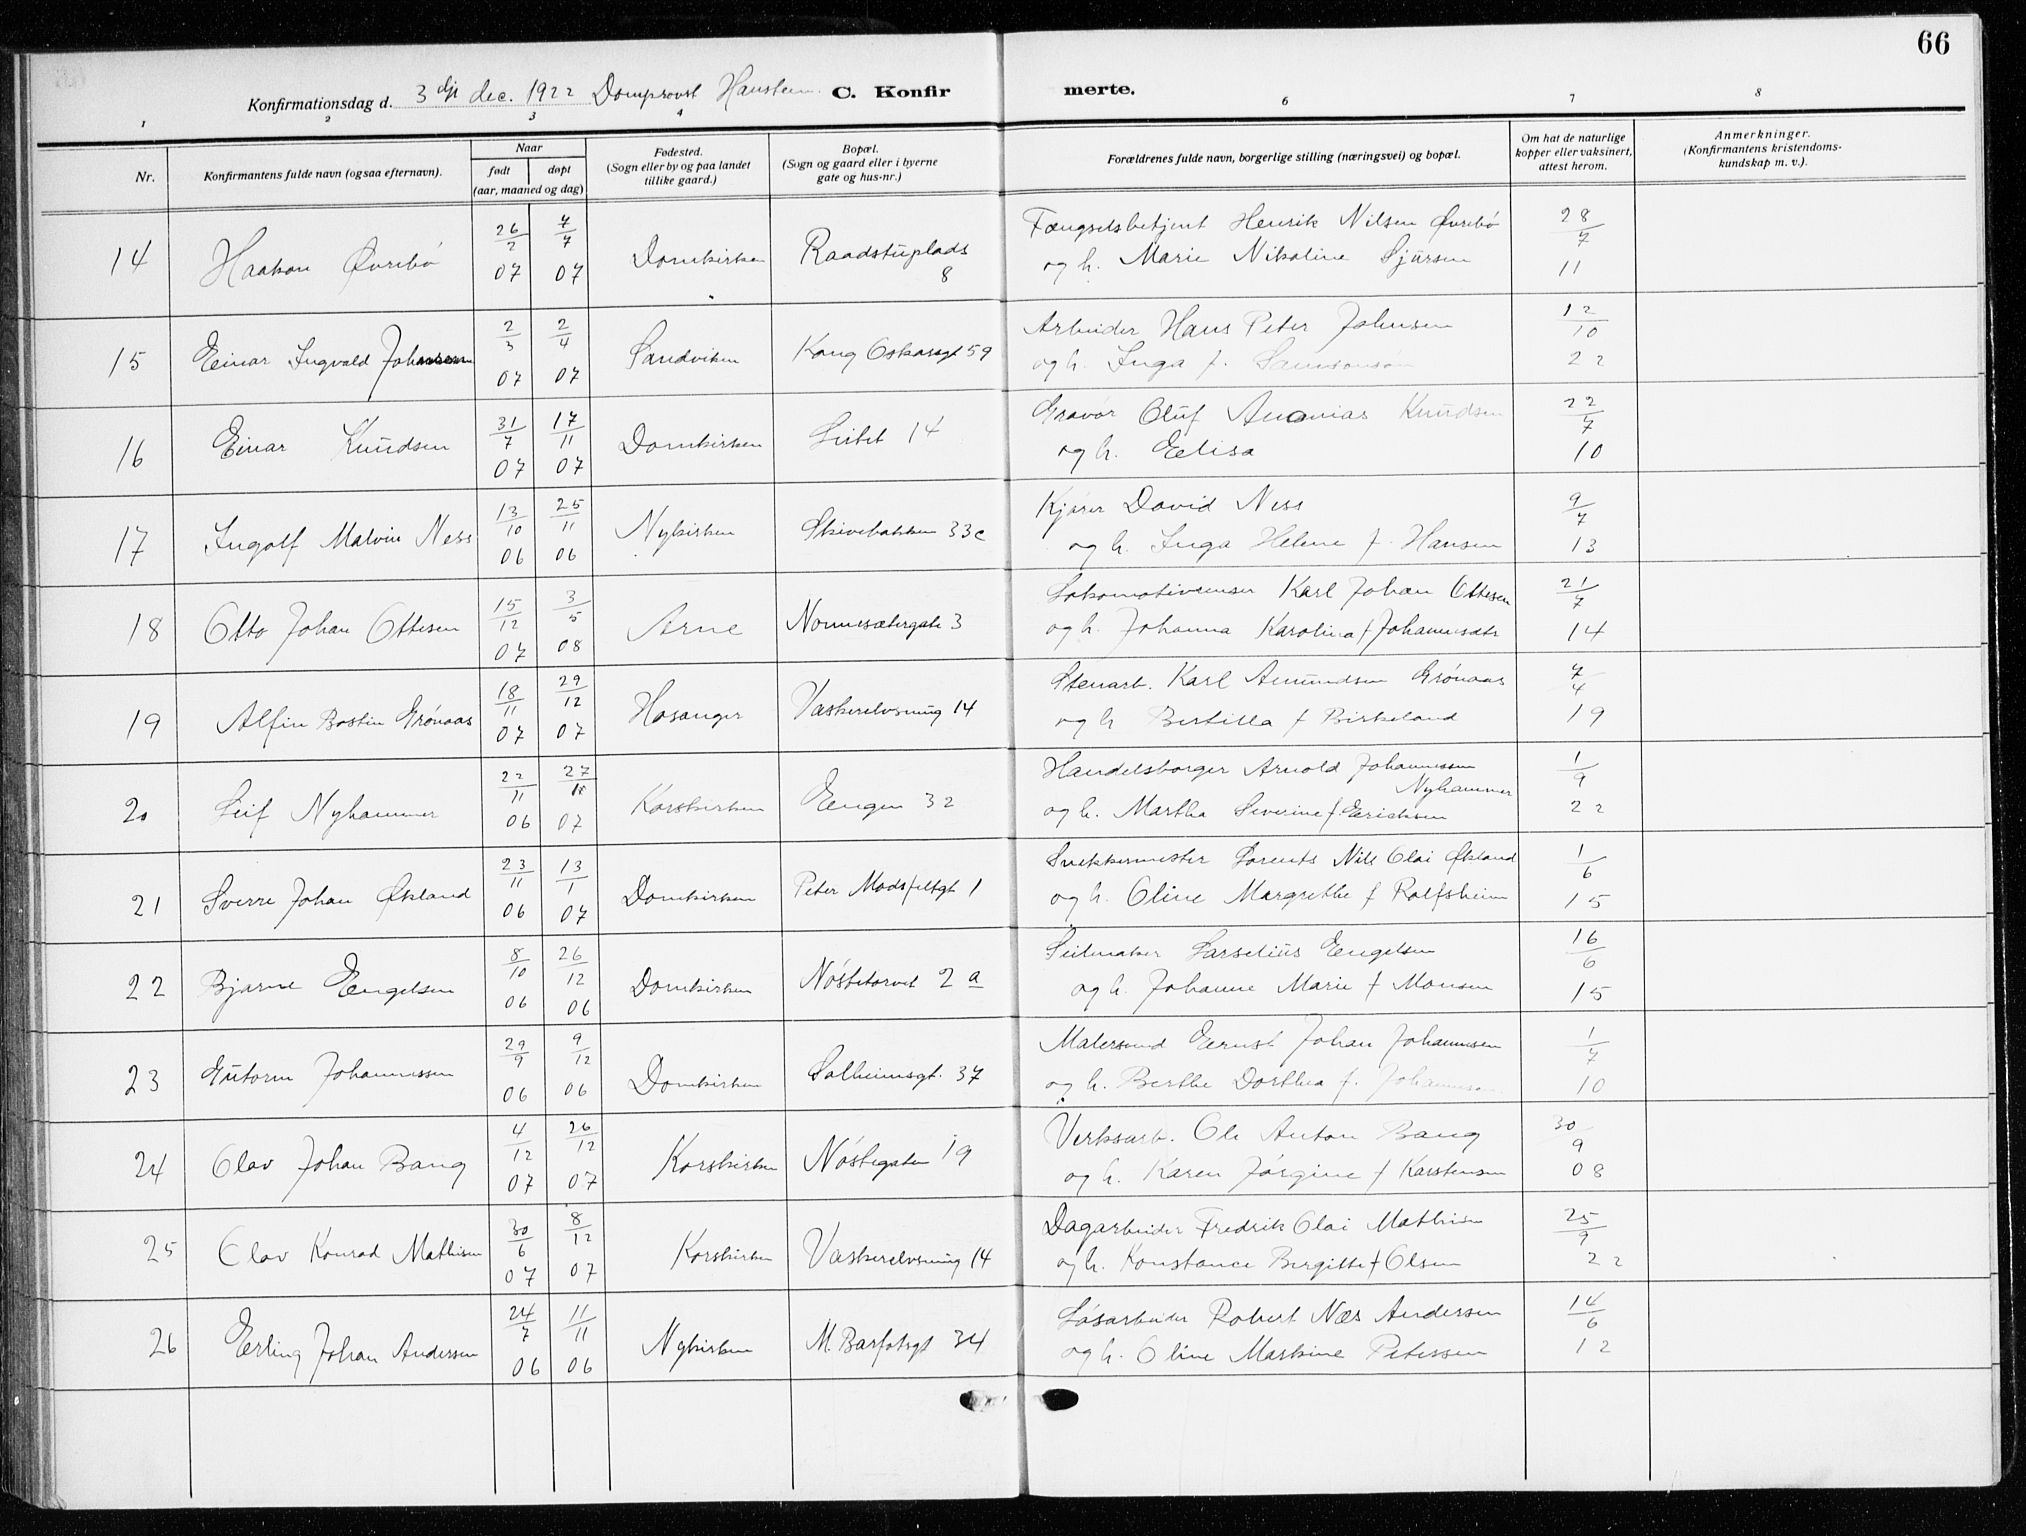 66
Konfirmationsdag d. 3dje dec. 1922 Domprovst Hanstein. C. Konfirmerte.
1 2 3 4 6 7 8
Nr. Konfirmantens fulde navn (ogsaa efternavn). Naar født døpt (aar, maaned og dag) Fødested. (Sogn eller by og paa landet tillike gaard.) Bopæl. (Sogn og gaard eller i byerne gate og hus-nr.) Forældrenes fulde navn, borgerlige stilling (næringsvei) og bopæl. Om hat de naturlige kopper eller vaksinert, attest herom. Anmerkninger. (Konfirmantens kristendomskundskap m. v.).
14 Haakon Øvrebø 26/2 07 7/7 07 Domkirken Raadstuplads 8 Fængselsbetjent Henrik Nilsen Øvrebø 28/7 11
og h. Marie Nikoline Sjursen
15 Einar Ingvald 2/3 07 2/4 07 Sandviken Kong Oskarsgt 59 Arbeider Hans Peter Johnsen 12/10 22
og h. Inga f. Samsonsen
16 Einar Knudsen 31/7 07 17/11 07 Domkirken Leitet 14 Gravør Oluf Ananias Knudsen 22/7 10
og h. Elisa
17 Ingolf Malvin Ness 13/10 06 25/11 06 Nykirken Skivebakken 33c Kjører David Ness 9/7 13
og h. Inga Helene f. Hansen
18 Otto Johan Ottesen 15/12 07 3/5 08 Arne Nonnesætergate 3 Lokomotivpudser Karl Johan Ottesen 21/7 14
og h. Johanna Karolina f Johannesdtr
19 Alfin Bostin Grønaas 18/11 07 29/12 07 Hosanger Vaskerelvsmug 14 Stenarb. Karl Amundsen Grønaas 7/4 19
og h Bertilla f Birkeland
20 Leif Nyhammer 22/11 06 27/10 07 Korskirken Engen 32 Handelsborger Arnold Johannessen Nyhammer 1/9 22
og h. Martha Severine f. Erichsen
21 Sverre Johan Økland 23/11 06 13/1 07 Domkirken Peter Modsfeltgt 1 Snekkermester Lorents Nils Olai Økland 1/6 15
og h. Oline Margrethe f Rolfsheim
22 Bjarne Engelsen 8/10 06 26/12 06 Domkirken Nøstetorvet 2 a Seilmaker Larselius Engelsen 16/6 15
og h. Johanne Marie f Monsen
23 Gutorm Johannessen 29/9 06 9/12 06 Domkirken Solheimsgt. 37 Malersvend Ernst Johan Johannesen 1/7 10
og h. Berthe Dorthea f. Johannesen
24 Olav Johan Bang 4/12 07 26/12 07 Korskirken Nøstegaten 19 Verksarb. Ole Anton Bang 30/9 08
og h. Karen Jørgine f Karstensen
25 Olav Konrad Mathisen 30/6 07 8/12 07 Korskirken Vaskerelvsmug 14 Dagarbeider Fredrik Olai Mathisen 25/9 22
og h. Konstance Birgitte f Olsen
26 Erling Johan Andersen 24/7 06 11/11 06 Nykirken M. Barfotsgt 34 Løsarbeider Robert Næs Andersen 14/6 12
og h. Oline Maskine Peterssen